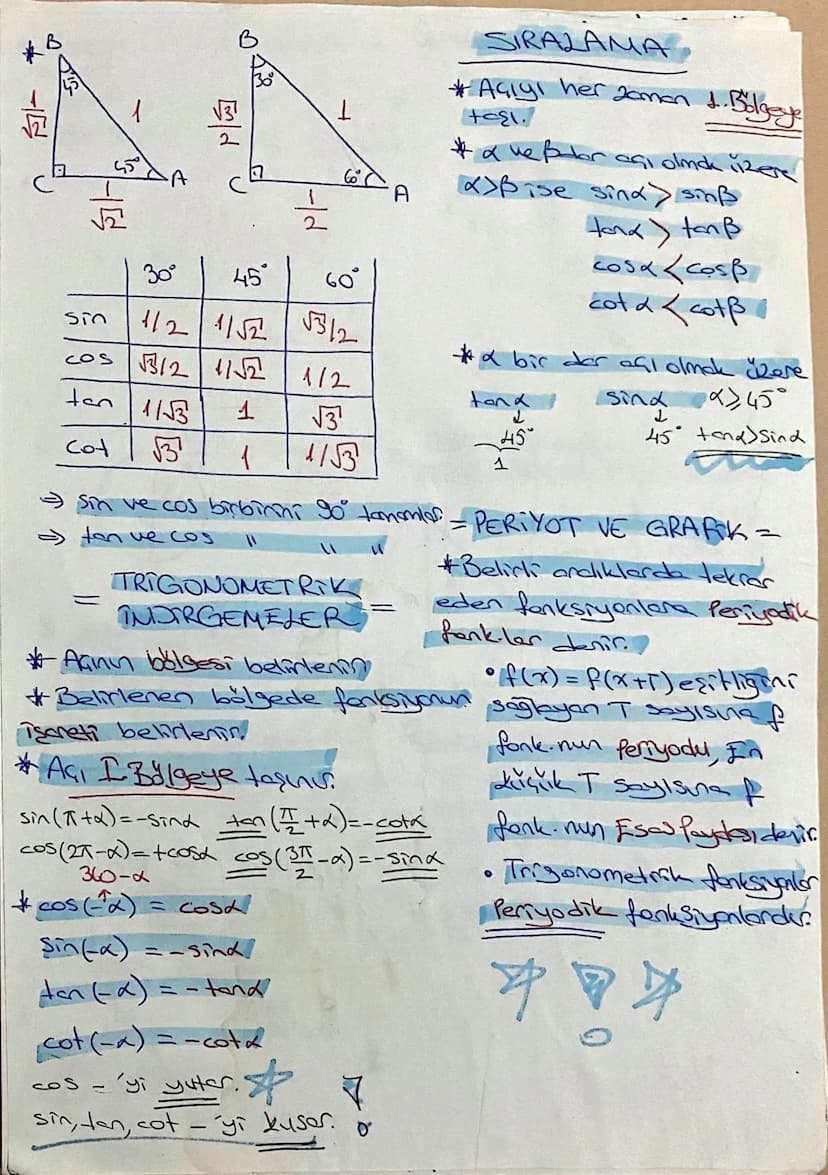 * B
45°
1/√2
1
45°
C
A
1/√2
B
30°
√3/2
1
60°
C
A
1/2
30° 45° 60°
sin 1/2 1/√2 √3/2
cos √3/2 1/√2 1/2
tan 1/√3 1 √3
cot √3 1 1/√3
⇒ sin ve cos birbirini 90° tamamlar.
⇒ tan ve cos " " "
= TRİGONOMETRİK
İNDİRGEMELER =
* Açının bölgesi belirlenir
* Belirlenen bölgede fonksiyonun
işareti belirlenir.
* Açı I.Bölgeye taşınır.
sin(π+α)=-sinα tan(π/2+α)=-cotα
cos(2π-α)=+cosα cos(3π/2-α)=-sinα
360-α
* cos(-α) = cosα
sin(-α) = -sinα
tan(-α) = -tanα
cot(-α) = -cotα
cos - 'yi yutar.
sin,tan,cot - 'yi kusar. !
SIRALAMA
* Açıyı her zaman 1.Bölgeye
taşı.
* α ve β dar açı olmak üzere
α>β ise sinα > sinβ
tanα > tanβ
cosα < cosβ
cotα < cotβ
* α bir dar açı olmak üzere
tanα sinα α≥45°
↓ ↓
45° 45° tanα>sinα
1
= PERİYOT VE GRAFİK =
* Belirli aralıklarda tekrar
eden fonksiyonlara Periyodik
fonk.lar denir.
• f(x) = f(x+T) eşitliğini
sağlayan T sayısına f
fonk.nun Periyodu, En
küçük T sayısına f
fonk.nun Esas denir.
• Trigonometrik fonksiyonlar
Periyodik fonksiyonlardır.
!